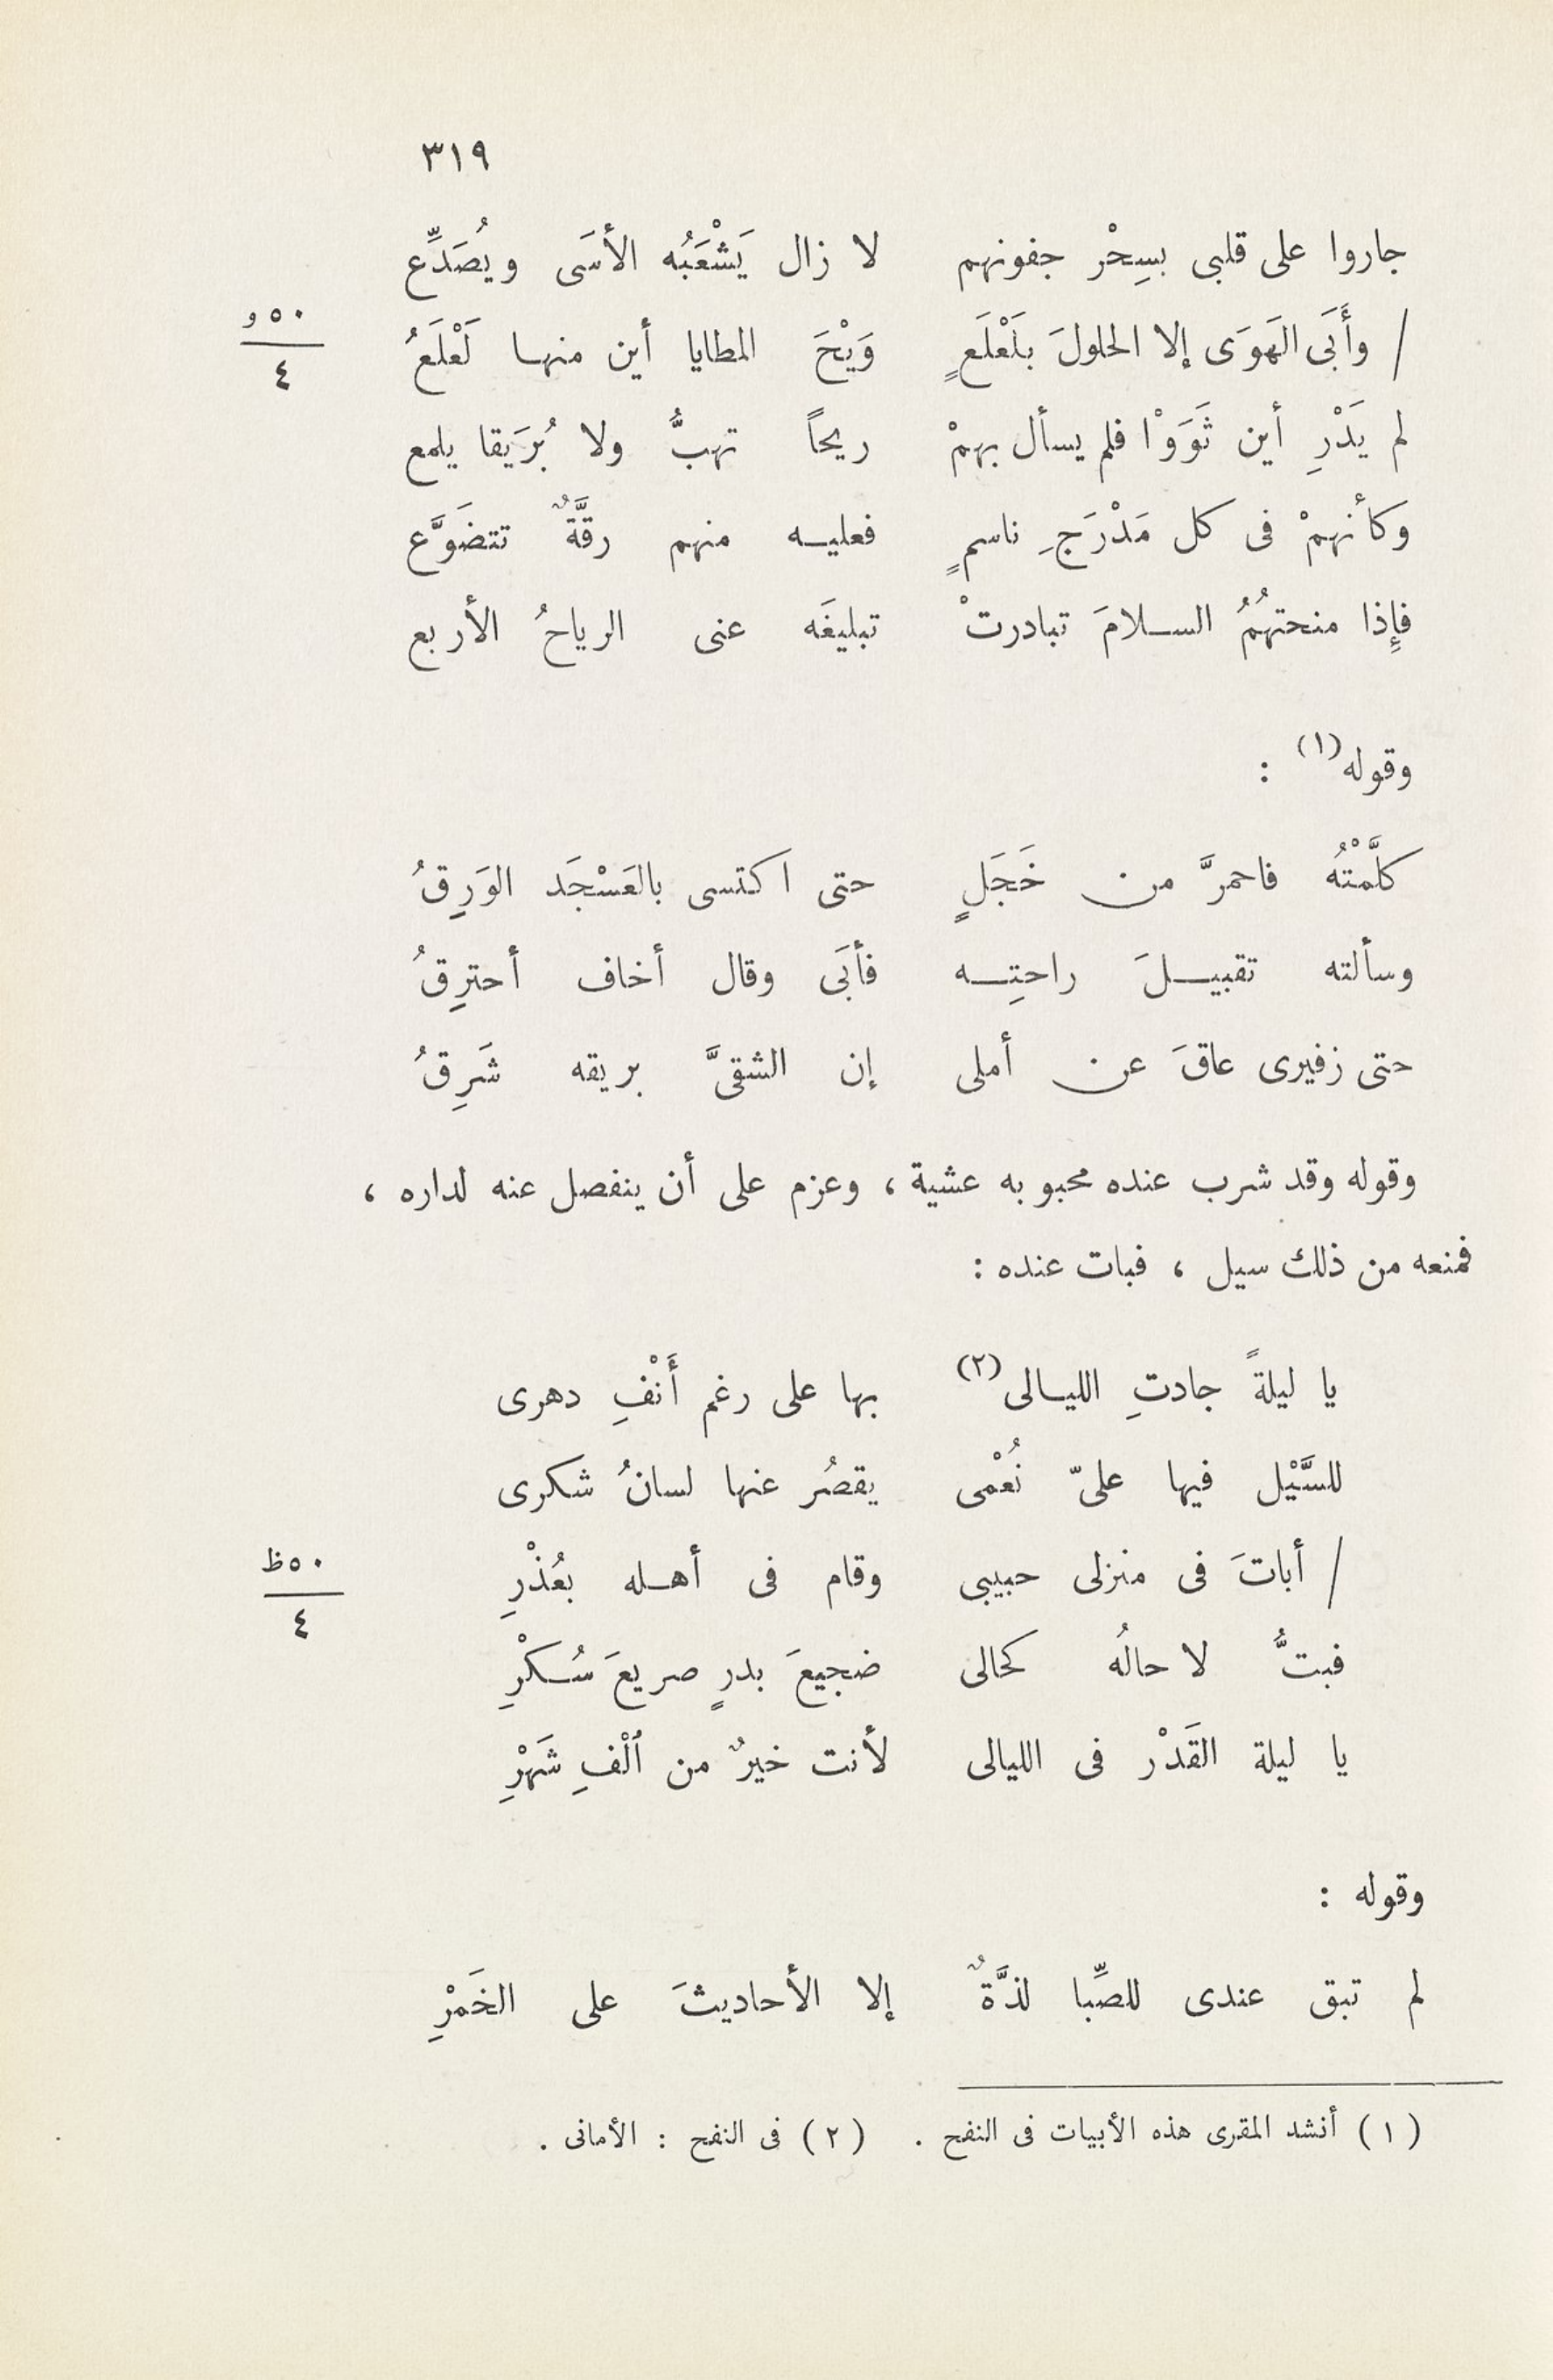 ٣١٩
جاروا على قلبى بسِحْر جفونهم لا زال يَشْعَبُه الأسَى ويُصَدِّع
/ وأَبَى الهَوَى إلا الحلولَ بلَعْلَعٍ وَيْحَ المطايا أين منها لَعْلَعُ
٥٠و
٤
لم يَدْرِ أين ثَوَوْا فلم يسأل بهمْ ريحاً تهبُّ ولا بُرَيقا يلمع
وَكأنهمْ فى كل مَدْرَجِ ناسمٍ فعليه منهم رقَّةٌ تتضَوَّع
فإِذا منحتهُمُ السلامَ تبادرتْ تبليغَه عنى الرياحُ الأربع
وقوله(١) :
كلَّمْتُه فاحمرَّ من خَجَلٍ حتى اكتسى بالعَسْجَد الوَرِقُ
وسألته تقبيلَ راحتِه فأبَى وقال أخاف أحترِقُ
حتى زفيرى عاقَ عن أملى إن الشقىَّ بريقه شَرِقُ
وقوله وقد شرب عنده محبوبه عشية ، وعزم على أن ينفصل عنه لداره ،
فمنعه من ذلك سيل ، فبات عنده :
يا ليلةً جادتِ الليالى(٢) بها على رغم أَنْفِ دهرى
للسَّيْل فيها علىّ نُعْمى يقصُر عنها لسانُ شكرى
/ أباتَ فى منزلى حبيبى وقام فى أهله بعُذْرِ
٥٠ظ
٤
فبتُّ لا حالُه كحالى ضجيعَ بدرٍ صريعَ سُكْرِ
يا ليلة القَدْر فى الليالى لأنت خيرٌ من ألْفِ شَهْرِ
وقوله :
لم تبق عندى للصِّبا لذَّةٌ إلا الأحاديثَ على الخَمْرِ
(١) أنشد المقرى هذه الأبيات فى النفح . (٢) فى النفح : الأمانى .